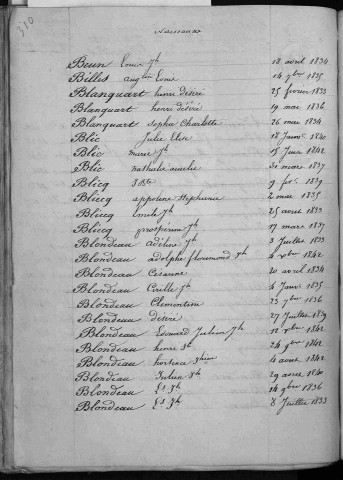 310
Naissances
Beun Louis Jh 18 avril 1834
Billet augtin Louis 14 9bre 1835
Blanquart henri désiré 25 février 1833
Blanquart henri désiré 19 mai 1836
Blanquart sophie Charlotte 26 mai 1834
Blic Julie Elise 18 Janv. 1840
Blic marie Jh 15 Juin 1842
Blic nathalie aurélie 31 mars 1837
Blicq J. Bte 9 fer. 1839
Blicq appoline Stéphanie 2 mai 1835
Blicq Emile Jh 25 aout 1833
Blicq prospérine Jh 17 mars 1837
Blondeau adeline Jh 3 Juillet 1833
Blondeau adolphe florimond Jh 4 xbre 1842
Blondeau Césarine 20 avril 1834
Blondeau Cirille Jh 4 Janv. 1835
Blondeau Clémentine 23 7bre 1836
Blondeau désiré 27 Juillet 1839
Blondeau Edouard Julien Jh 12 xbre 1842
Blondeau henri Jh 24 9bre 1842
Blondeau hortence Jhine 4 aout 1842
Blondeau Julien Jh 29 avril 1840
Blondeau Ls Jh 14 9bre 1836
Blondeau Ls Jh 8 Juillet 1833